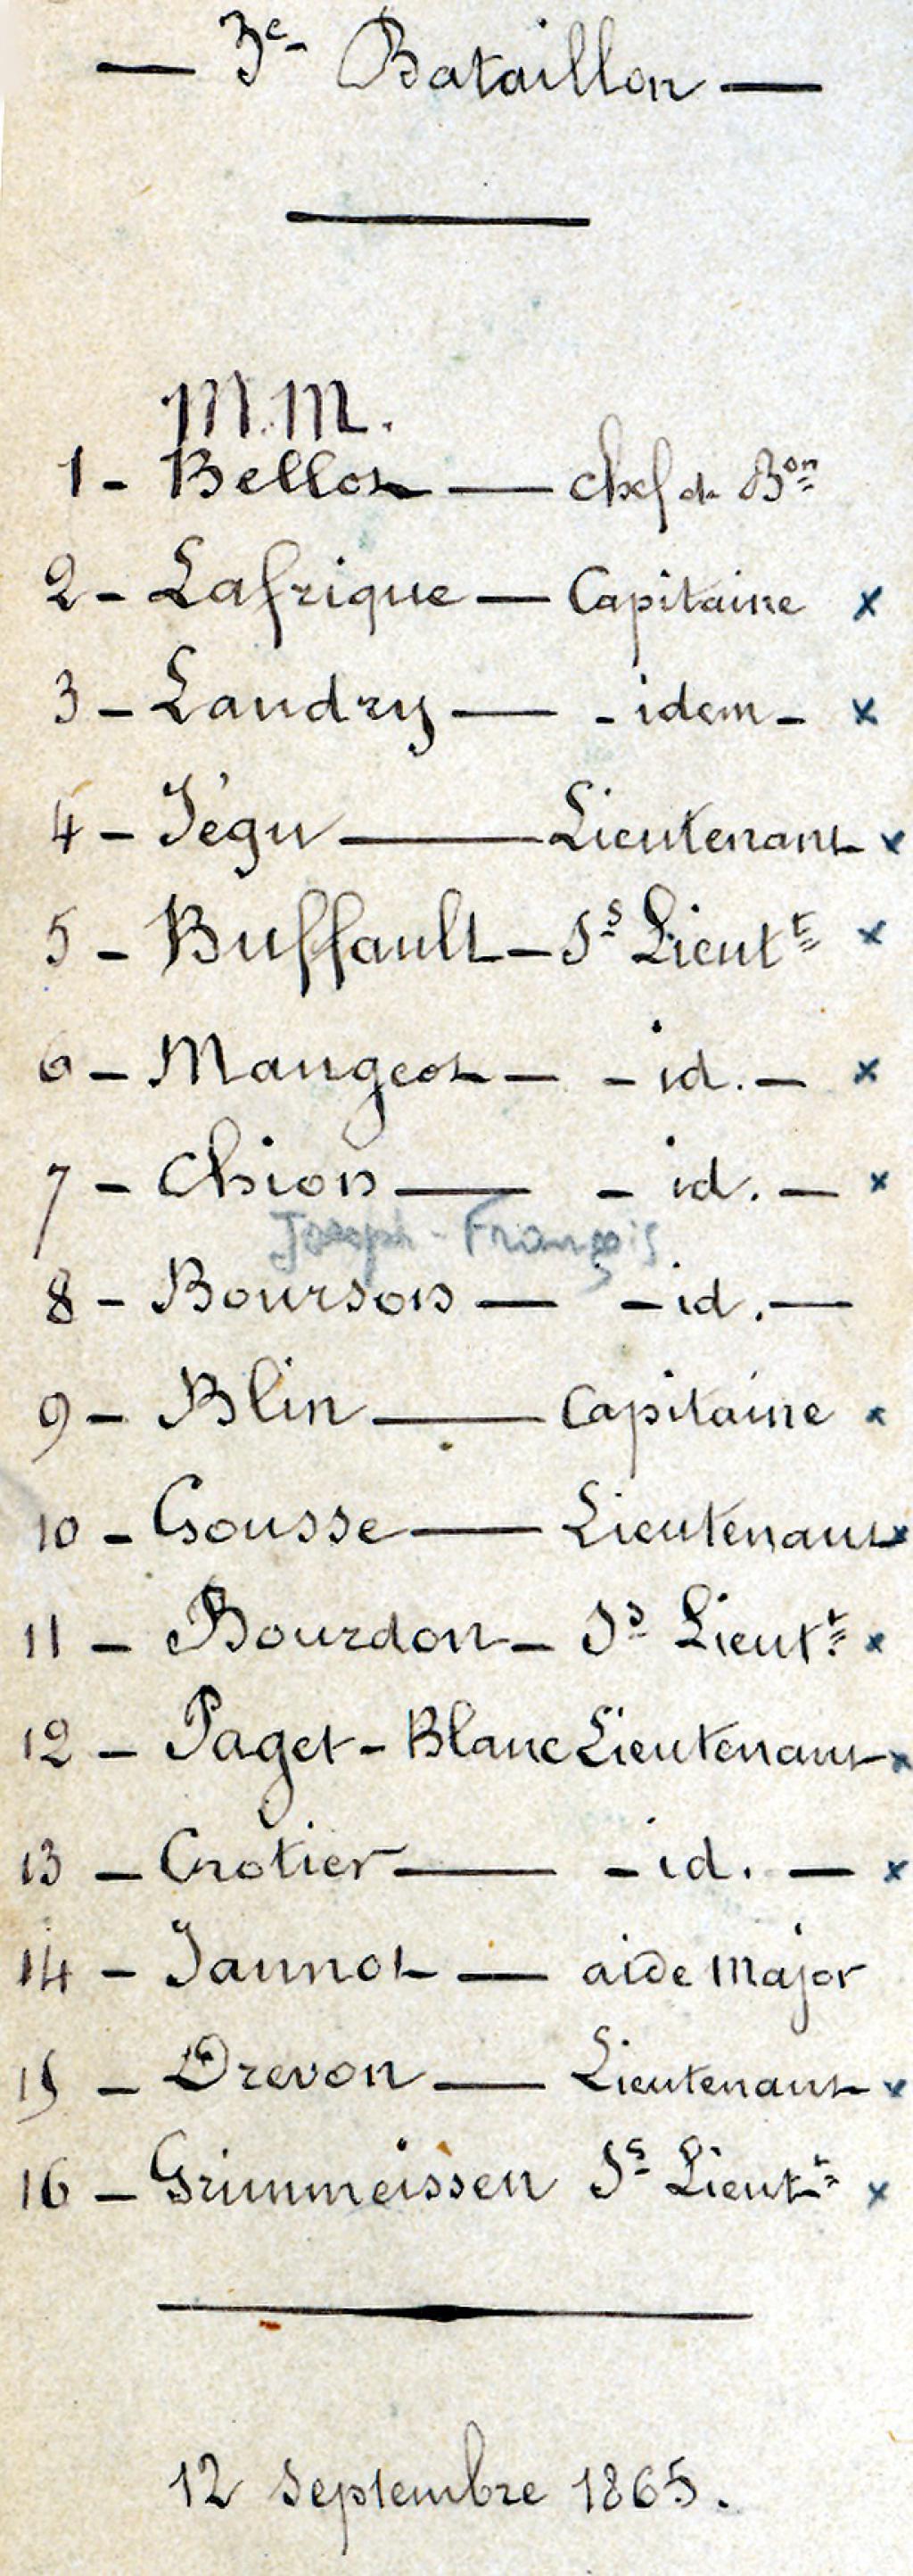 — 3e Bataillon —
M.M.
1 - Bellot — chef de Bon
2 - Lafrique — Capitaine x
3 - Landry — - idem - x
4 - Jégu — Lieutenant x
5 - Buffault — Ss Lieutt x
6 - Mangeot — - id. - x
7 - Chion — - id. — x
Joseph - François
8 - Bourson — - id. —
9 - Blin — Capitaine x
10 - Gousse — Lieutenant x
11 - Bourdon - Ss Lieutt x
12 - Paget - Blanc Lieutenant x
13 - Crotier — - id. — x
14 - Jannot — aide Major
15 - Drevon — Lieutenant x
16 - Grimmeissen Ss Lieutt x
12 Septembre 1865.